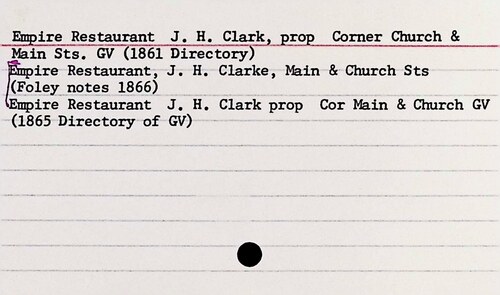 Empire Restaurant  J. H. Clark, prop  Corner Church &
Main Sts. GV (1861 Directory)
Empire Restaurant, J. H. Clarke, Main & Church Sts
(Foley notes 1866)
Empire Restaurant  J. H. Clark prop  Cor Main & Church GV
(1865 Directory of GV)